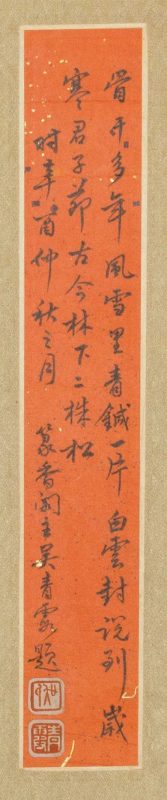 骨干多年風雪里青鍼一片白雲封說到歲
寒君子節古今林下二株松
時辛酉仲秋之月
篆香閣主吴青雲題
青霞